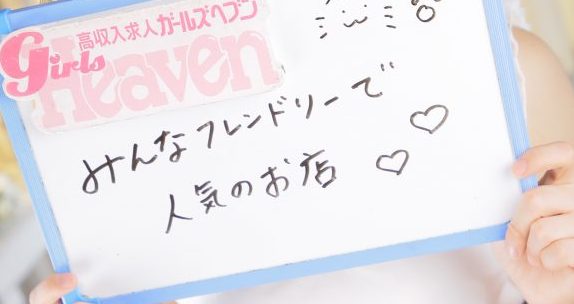 高収入求人ガールズヘブン
Girls
Heaven
みんなフレンドリーで
人気のお店